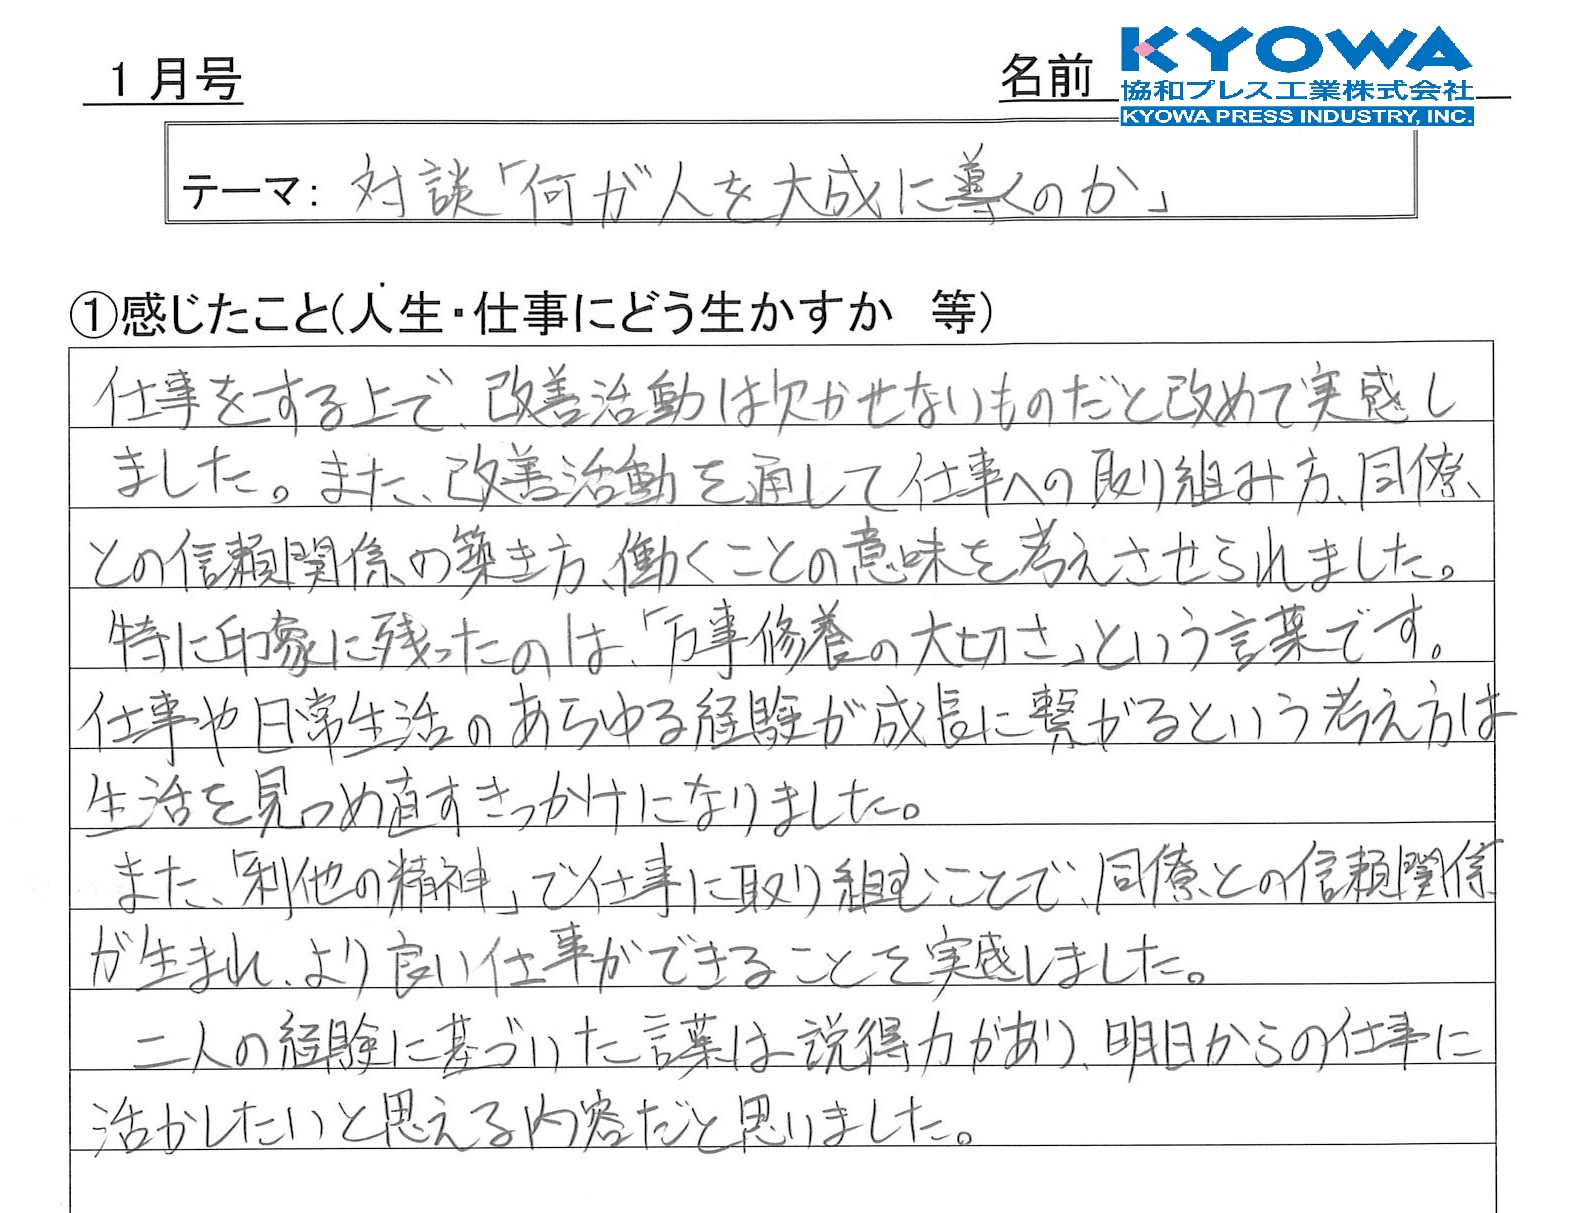 1月号
名前
KYOWA
協和プレス工業株式会社
KYOWA PRESS INDUSTRY, INC.
テーマ: 対談「何が人を大成に導くのか」
①感じたこと(人生・仕事にどう生かすか 等)
仕事をする上で、改善活動は欠かせないものだと改めて実感し
ました。また、改善活動を通して仕事への取り組み方、同僚
との信頼関係の築き方、働くことの意味を考えさせられました。
特に印象に残ったのは、「万事修養の大切さ」という言葉です。
仕事や日常生活のあらゆる経験が成長に繋がるという考え方は
生活を見つめ直すきっかけになりました。
また、「利他の精神」で仕事に取り組むことで、同僚との信頼関係
が生まれ、より良い仕事ができることを実感しました。
二人の経験に基づいた言葉は説得力があり、明日からの仕事に
活かしたいと思える内容だと思いました。